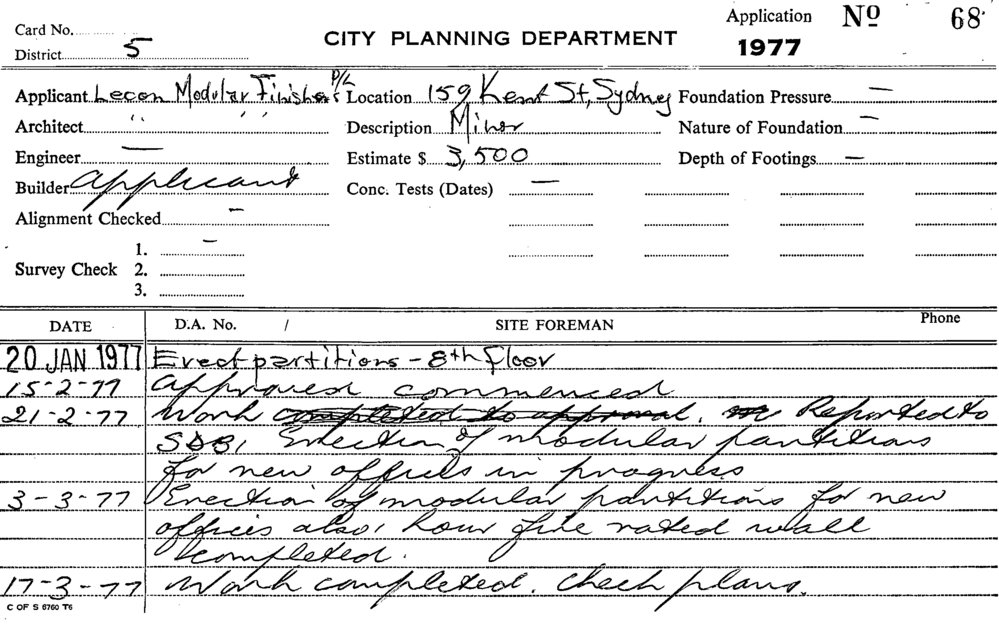 Card No.
Application No 68
District 5
CITY PLANNING DEPARTMENT
1977
Applicant Lecon Modular Finishers P/L Location 159 Kent St, Sydney Foundation Pressure —
Architect " " Description Minor Nature of Foundation —
Engineer — Estimate $ 3,500 Depth of Footings —
Builder Applicant Conc. Tests (Dates) —
Alignment Checked —
1. —
Survey Check 2.
3.
DATE D.A. No. / SITE FOREMAN Phone
20 JAN 1977 Erect partitions - 8th floor
15-2-77 Approved commenced
21-2-77 Work completed to approval. Reported to
SDB, Erection of modular partitions
for new offices in progress
3-3-77 Erection of modular partitions for new
offices also 1 hour fire rated wall
completed.
17-3-77 Work completed. Check plans.
C OF S 6760 T6